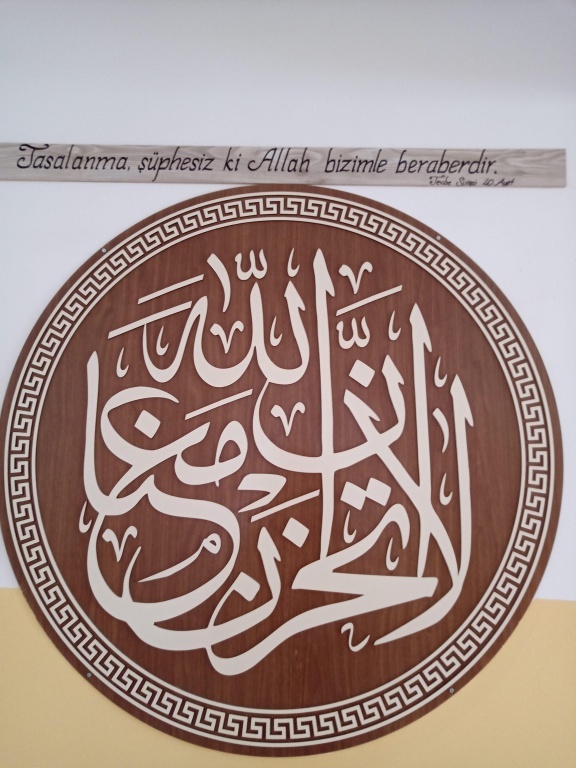 Tasalanma, şüphesiz ki Allah bizimle beraberdir.
Tevbe Suresi 40. Ayet
لا تحزن إن الله معنا